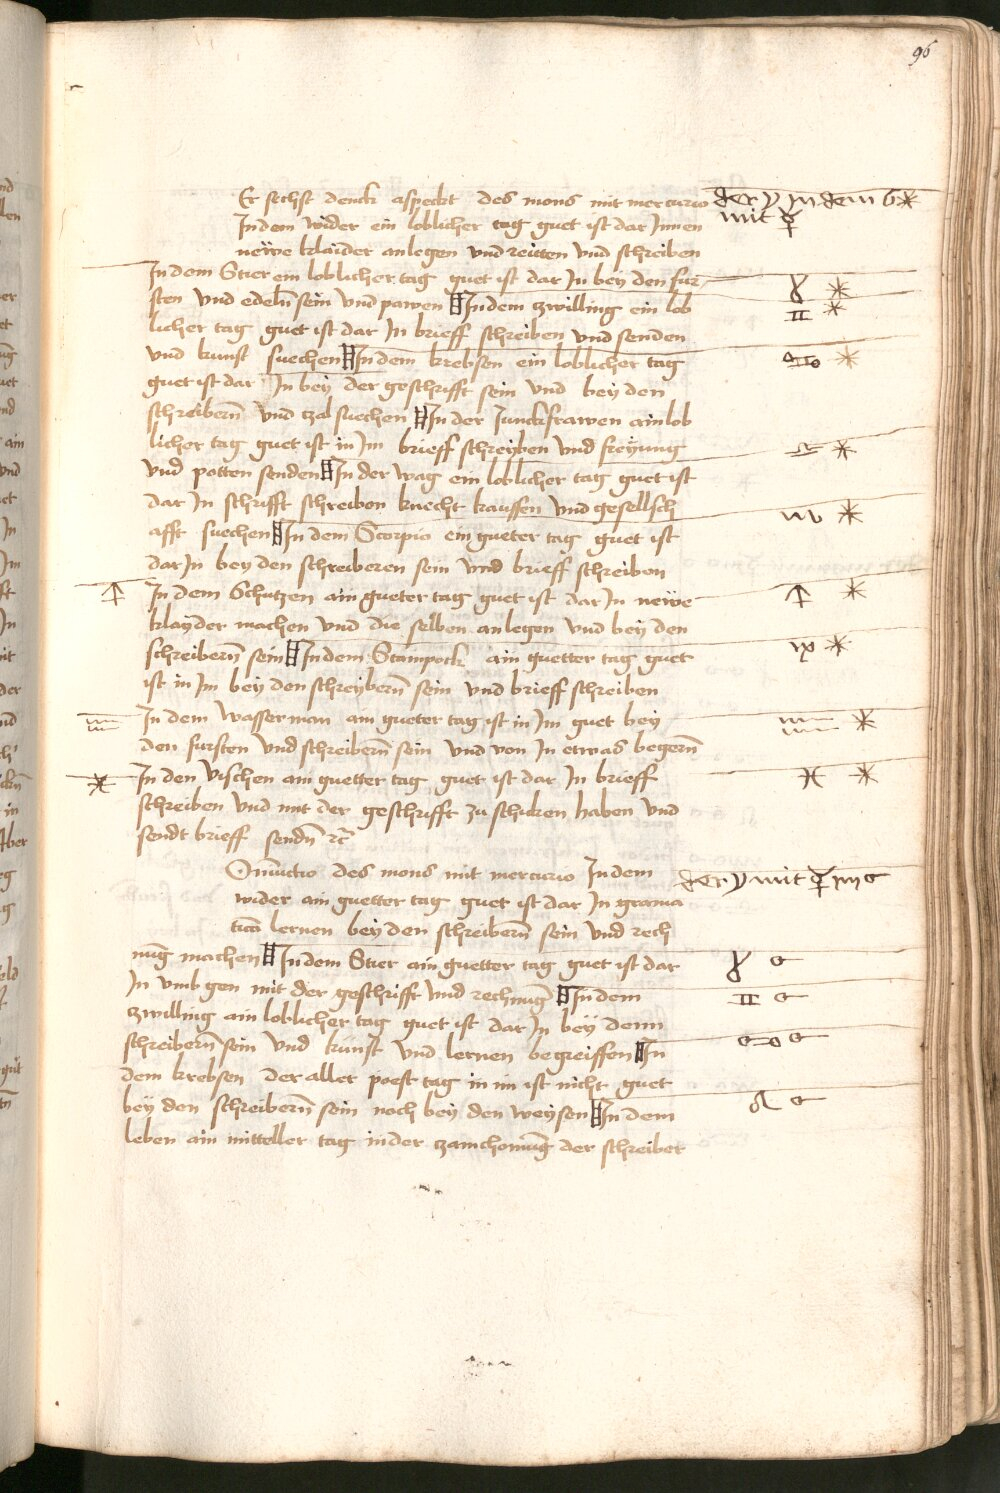 96
Er sechst denck aspeckt des mons mit mercurio
der ☽ in dem 6 ⚹
mit ☿
In dem wider ein loblicher tag guet ist dar Innen
newe klaider anlegen vnd reitten vnd schreiben
In dem Stier ein loblicher tag guet ist dar In bey den fur
♉ ⚹
sten vnd edeln̄ sein vnd pawen In dem zwilling ein lob
♊ ⚹
licher tag guet ist dar In brieff schreiben vnd senden
vnd kunst suechen In dem krebsen ein loblicher tag
♋ ⚹
guet ist dar In bey der geschrifft sein vnd bey den
schreibern̄ vnd zal suechen In der Junckfrawen ain lob
licher tag guet ist in Im brieff schreyben vnd freyung
♎ ⚹
vnd potten senden In der wag ein loblicher tag guet ist
dar In schrifft schreiben knecht kauffen vnd gesellsch
♏ ⚹
afft suechen In dem Scorpio ein gueter tag guet ist
dar In bey den schreiberen sein vnd brieff schreiben
♐ In dem Schutzen ain gueter tag guet ist dar In newe
♐ ⚹
klayder machen vnd die selben anlegen vnd bey den
schreibern̄ sein In dem Stainpock ain guetter tag guet
♑ ⚹
ist in Im bey den schreybern̄ sein vnd brieff schreiben
♒ In dem wasserman ain gueter tag ist in Im guet bey
♒ ⚹
den fursten vnd schreibern̄ sein vnd von In etwas begern̄
♓ In den vischen ain guetter tag guet ist dar In brieff
♓ ⚹
schreiben vnd mit der geschrifft zu schicken haben vnd
sendt brieff sendn̄ ꝛc̄
Oniūctio des mons mit mercurio In dem
der ☽ mit ☿ in ☌
wider ain guetter tag guet ist dar In grama
ticā lernen bey den schreibern̄ sein vnd rech
nūg machen In dem Stier ain guetter tag guet ist dar
♉ ☌
In vmb gen mit der geschrifft vnd rechnūg In dem
♊ ☌
zwilling ain loblicher tag guet ist dar In bey denn
schreibern̄ sein vnd kunst vnd lernen begreiffen In
♋ ☌
dem krebsen der aller poest tag in im ist nicht guet
bey den schreibern̄ sein noch bey den weysen In dem
♌ ☌
leben ain mitteller tag in der zamchomūg der schreiber